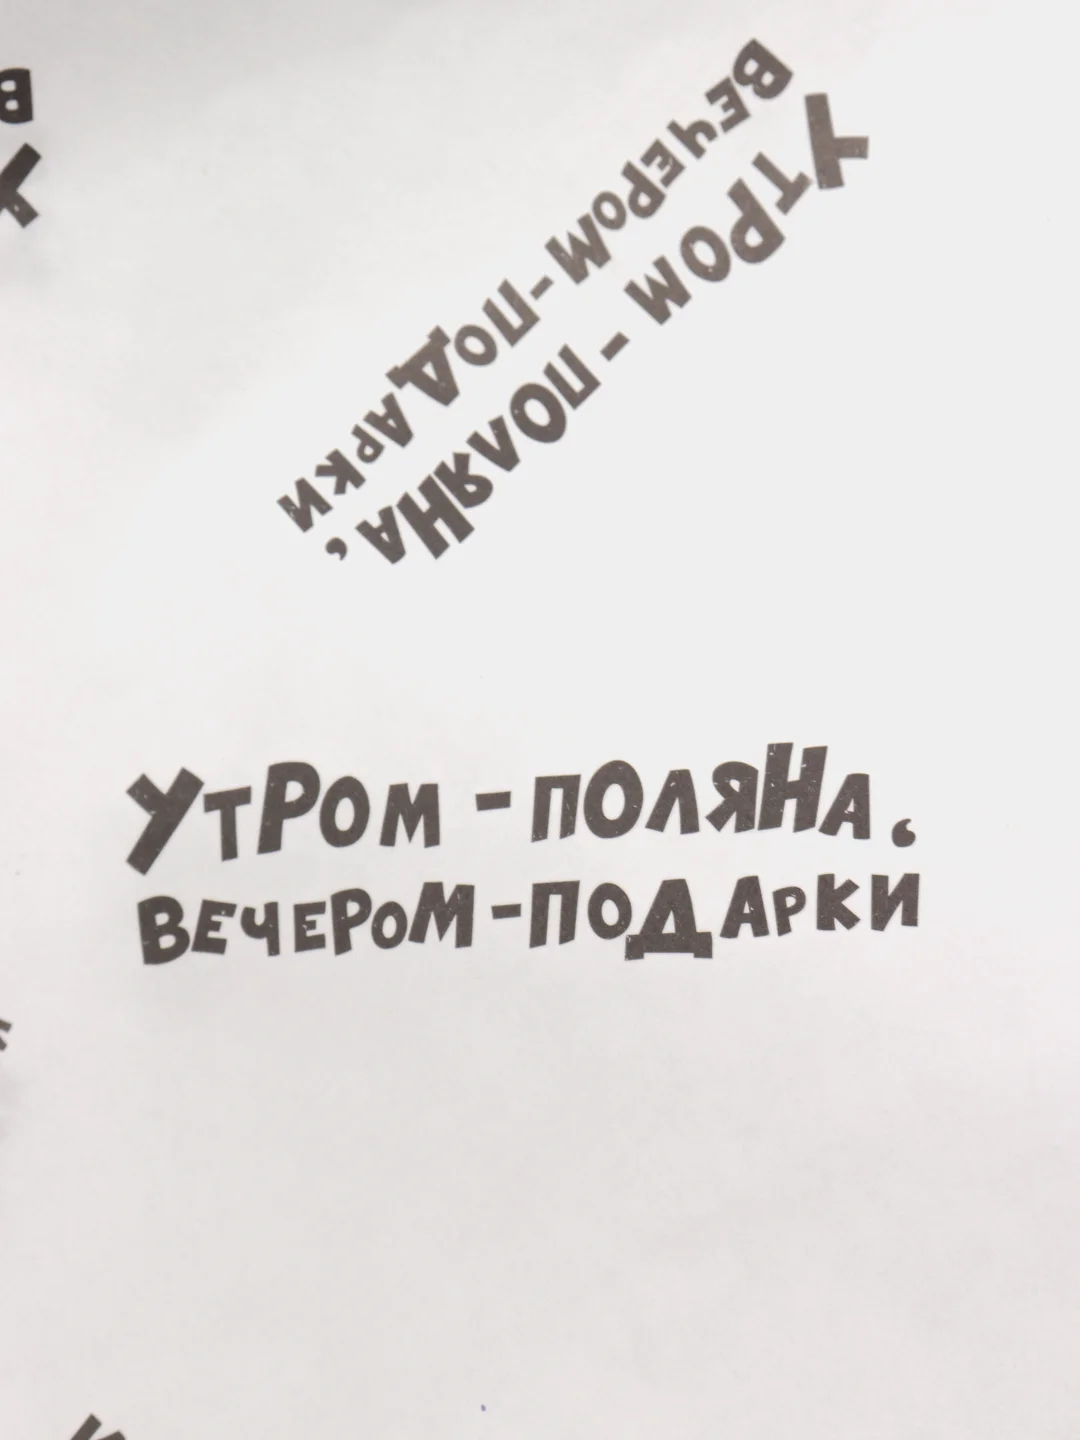 УТРОМ - ПОЛЯНА,
ВЕЧЕРОМ - ПОДАРКИ
УТРОМ - ПОЛЯНА,
ВЕЧЕРОМ - ПОДАРКИ